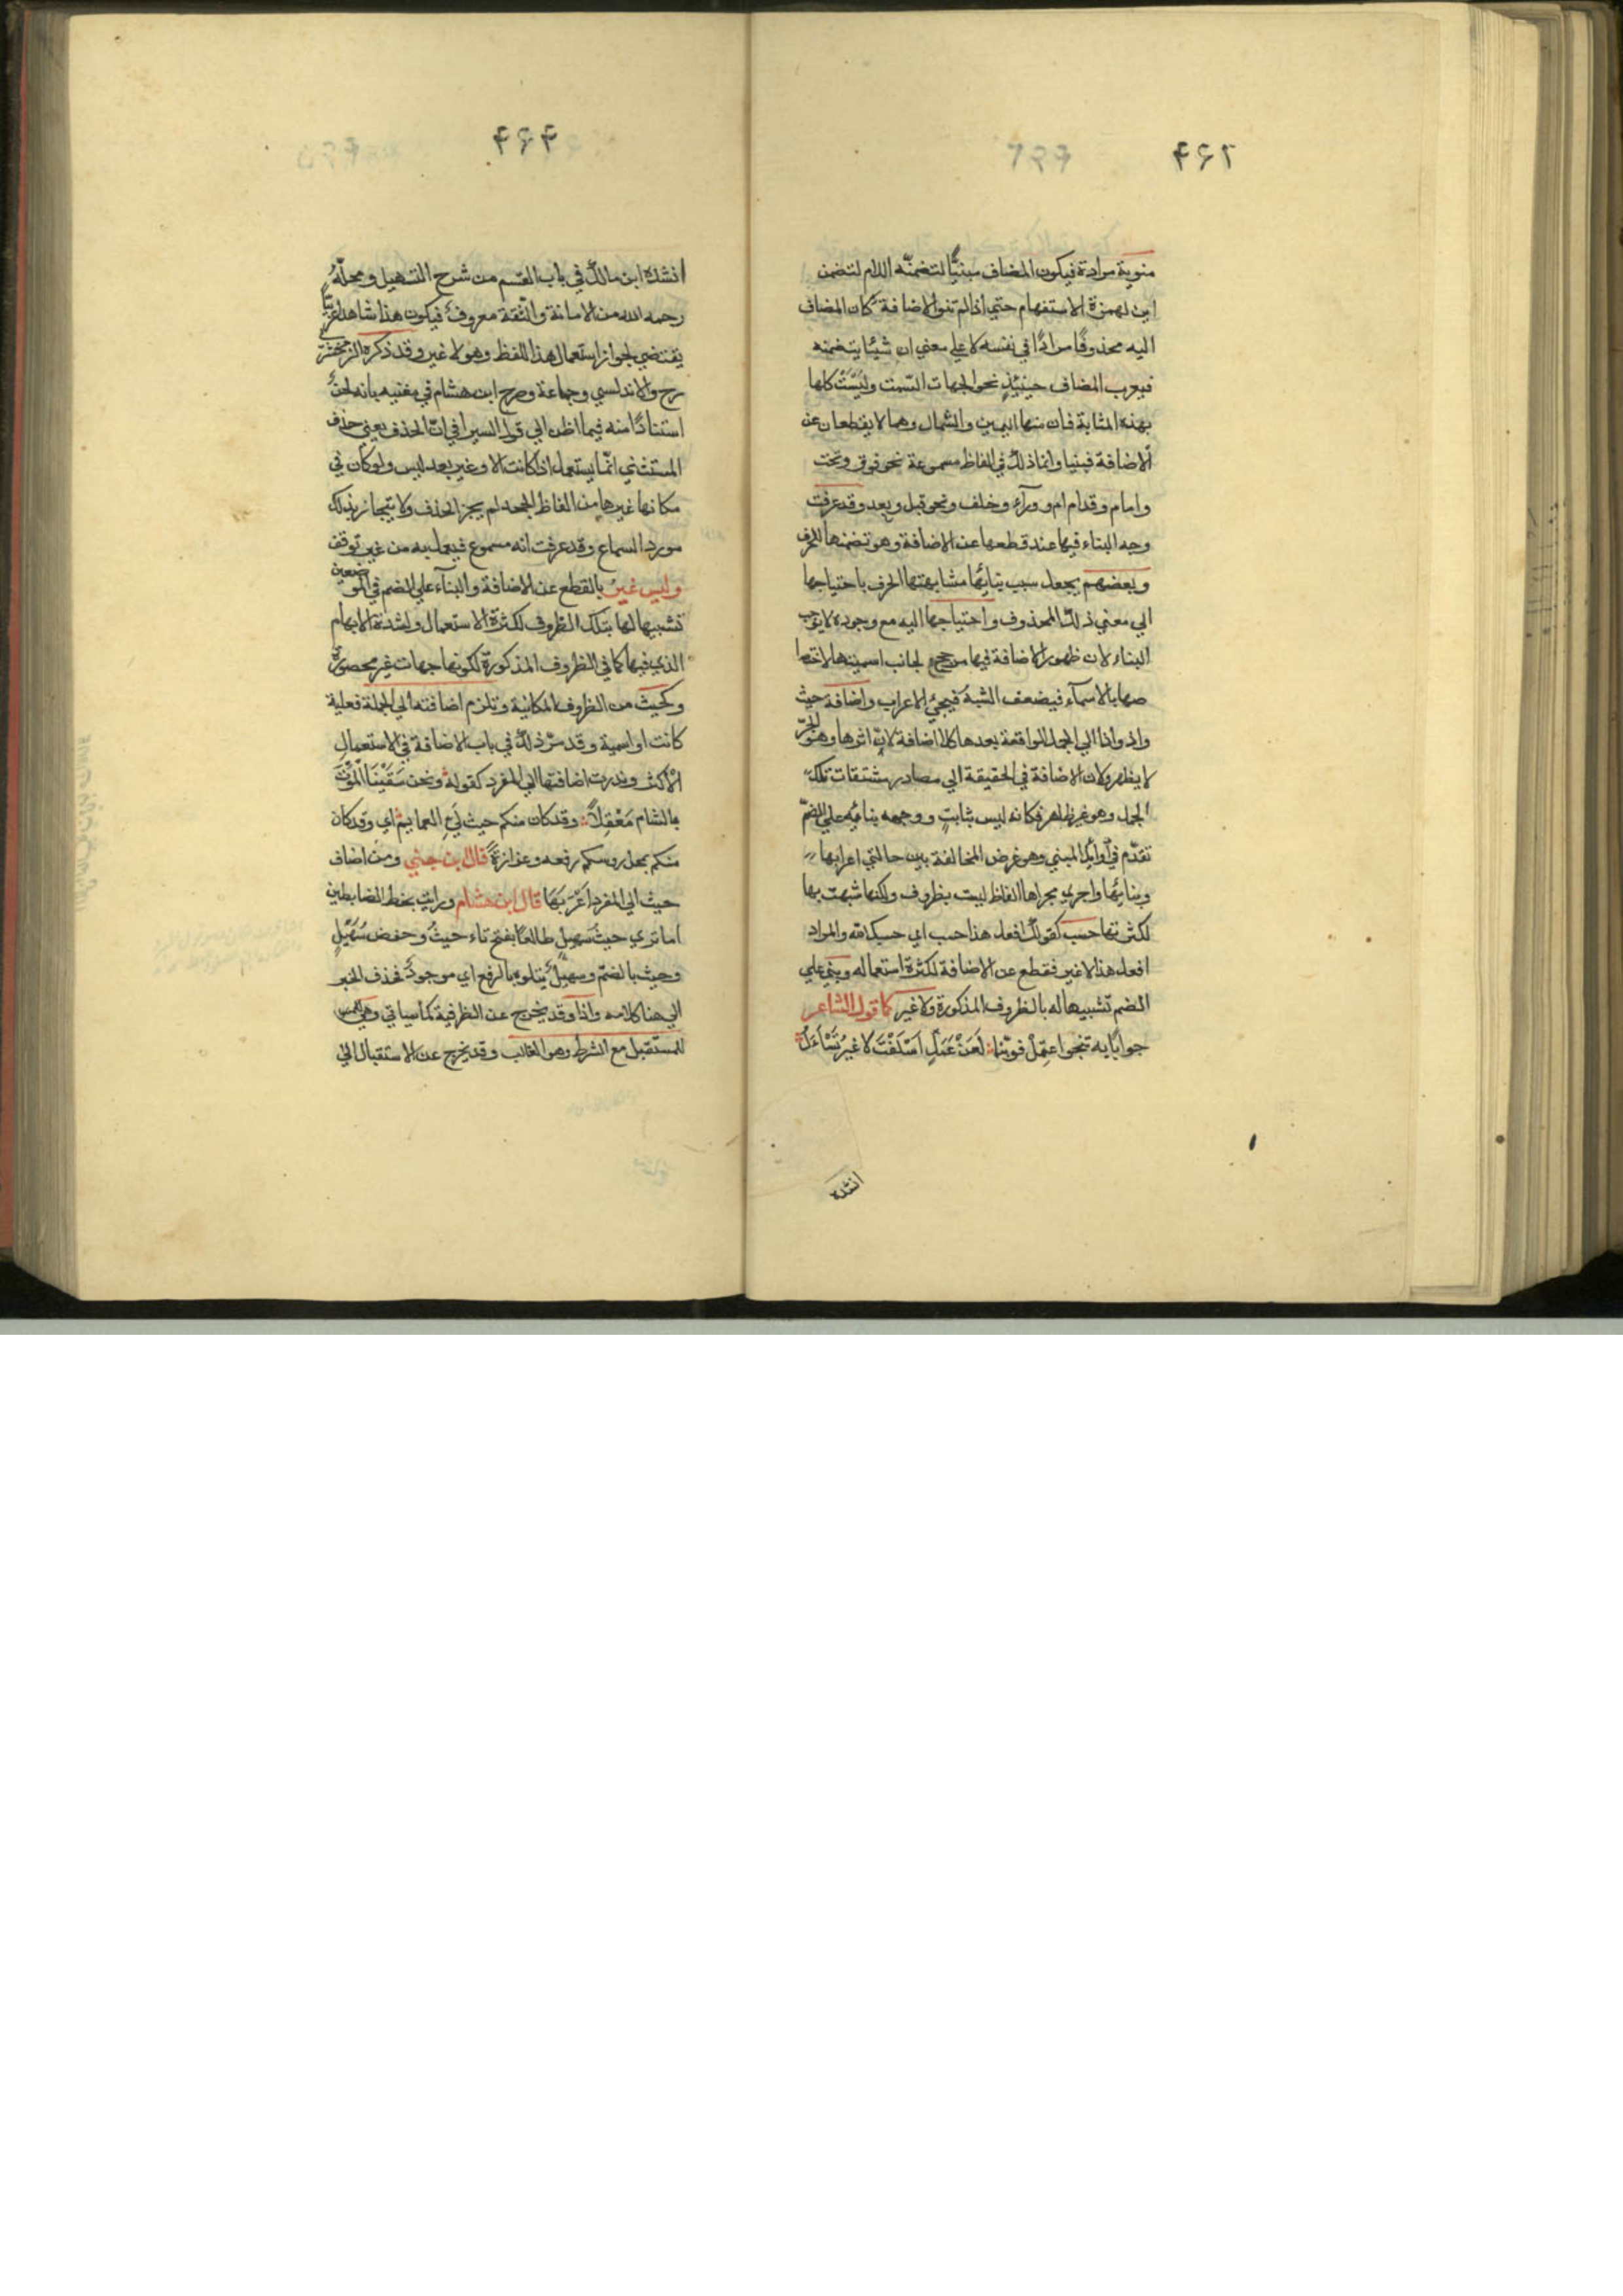 ٤٤٣
منوية مرادة فيكون المضاف مبنيًّا لتضمنّه اللام لتضمن
اين لهمزة الاستفهام حتي اذا لم تنو الاضافة كان المضاف
اليه محذوفًا مرادًا في نفسه لا علي معني ان شيئا يتضمنه
فيعرب المضاف حينئذٍ نحو الجهات السّت وليَسَتْ كلها
بهذه المثابة فان منها اليمين والشمال وهما لا يقطعان عن
الاضافة فبنيا وانما ذلك في الفاظ مسموعة نحو فوق وتحت
وامام وقدام ام وورآء وخلف ونحو قبل وبعد وقد عرفت
وجه البناء فيها عند قطعها عن الاضافة وهو تضمنها للحرف
وبعضهم يجعل سبب بنائها مشابهتها الحرف باحتياجها
الي معني ذلك المحذوف واحتياجها اليه مع وجوده لا يوجب
البناء لان ظهور الاضافة فيها مرجح لجانب اسميتها لاختصا
صها بالاسمآء فيضعف الشبهُ فيجئ الاعراب واضافة حيث
واذ واذا الي الجمل الواقعة بعدها كلا اضافة لانّ اثرها وهو الجرّ
لا يظهر ولان الاضافة في الحقيقة الي مصادر مشتقات تلك
الجمل وهو غير ظاهر فكانه ليس بثابتٍ ووجهه بنائه علي الضمّ
تقدّم في اوائل المبني وهو غرض المخالفة بين حالتي اعرابها
وبنائها واجري مجراها الفاظ ليست بظروف ولكنها شبهت بها
لكثرتها حسب كقولك افعل هذا حسب اي حسبك الله والمراد
افعل هذا لا غير فقطع عن الاضافة لكثرة استعماله وبني علي
الضم تشبيها له بالظروف المذكورة ولا غير كما قول الشاعر
جوابًا به تنجو اعتمِلْ فوربّنا لَعَنْ عَمَلٍ اَسْلَفْتَ لا غيرُ تُسْاَلُ
انشده
٤٤٤
انشده ابن مالك في باب القسم من شرح التسهيل ومحلّهُ
رحمه الله من الامانة والثقة معروفٌ فيكون هذا شاهدا عربيًّا
يقتضي لجواز استعمال هذا اللفظ وهو لا غير وقد ذكره الزمخشري
رح والاندلسي وجماعة وصرح ابن هشام في مغنيه بانه لحنٌ
استنادًا منه فيما اظن الي قول السيرافي انّ الحذف يعني حذف
المستثني انّما يستعمل اذا كانت الا وغير بعد ليس ولو كان في
مكانها غيرها من الفاظ الجحد لم يجز الحذف ولا يتجاوز بذلك
مورد السماع وقد عرفت انه مسموع فيعمل به من غير توقف
وليس غيرُ بالقطع عن الاضافة والبنآء علي الضم في الموضعين
تشبيها لها بتلك الظروف لكثرة الاستعمال ولشدة الابهام
الذي فيها كما في الظروف المذكورة لكونها جهات غير محصورة
وكحيث من الظروف المكانية وتلزم اضافته الي الجملة فعلية
كانت او اسمية وقد مرّ ذلك في باب الاضافة في الاستعمال
الاكثر وندرت اضافتها الي المفرد كقوله ونحن سَقَيْنَا الْمَوْتَ
بالشام مَعْقِلاً وقد كان منكم حيث لَيّ العمايم اي وقد كان
منكم بمحل روسكم رفعه وعزازةً قال ابن جني ومن اضاف
حيث الي المفرد اَعْرَبَهَا قال ابن هشام ورايت بخط الضابطين
اما تري حيثَ سهيلٍ طالعًا بفتح ثاء حيثُ وخفض سُهَيْلٍ
وحيث بالضمّ وسهيلٌ يتلوه بالرفع اي موجودٌ فحذف الخبر
الي هنا كلامه واذا وقد يخرج عن الظرفية كما سياتي وهي
للمستقبل مع الشرط وهو الغالب وقد يخرج عن الاستقبال الي